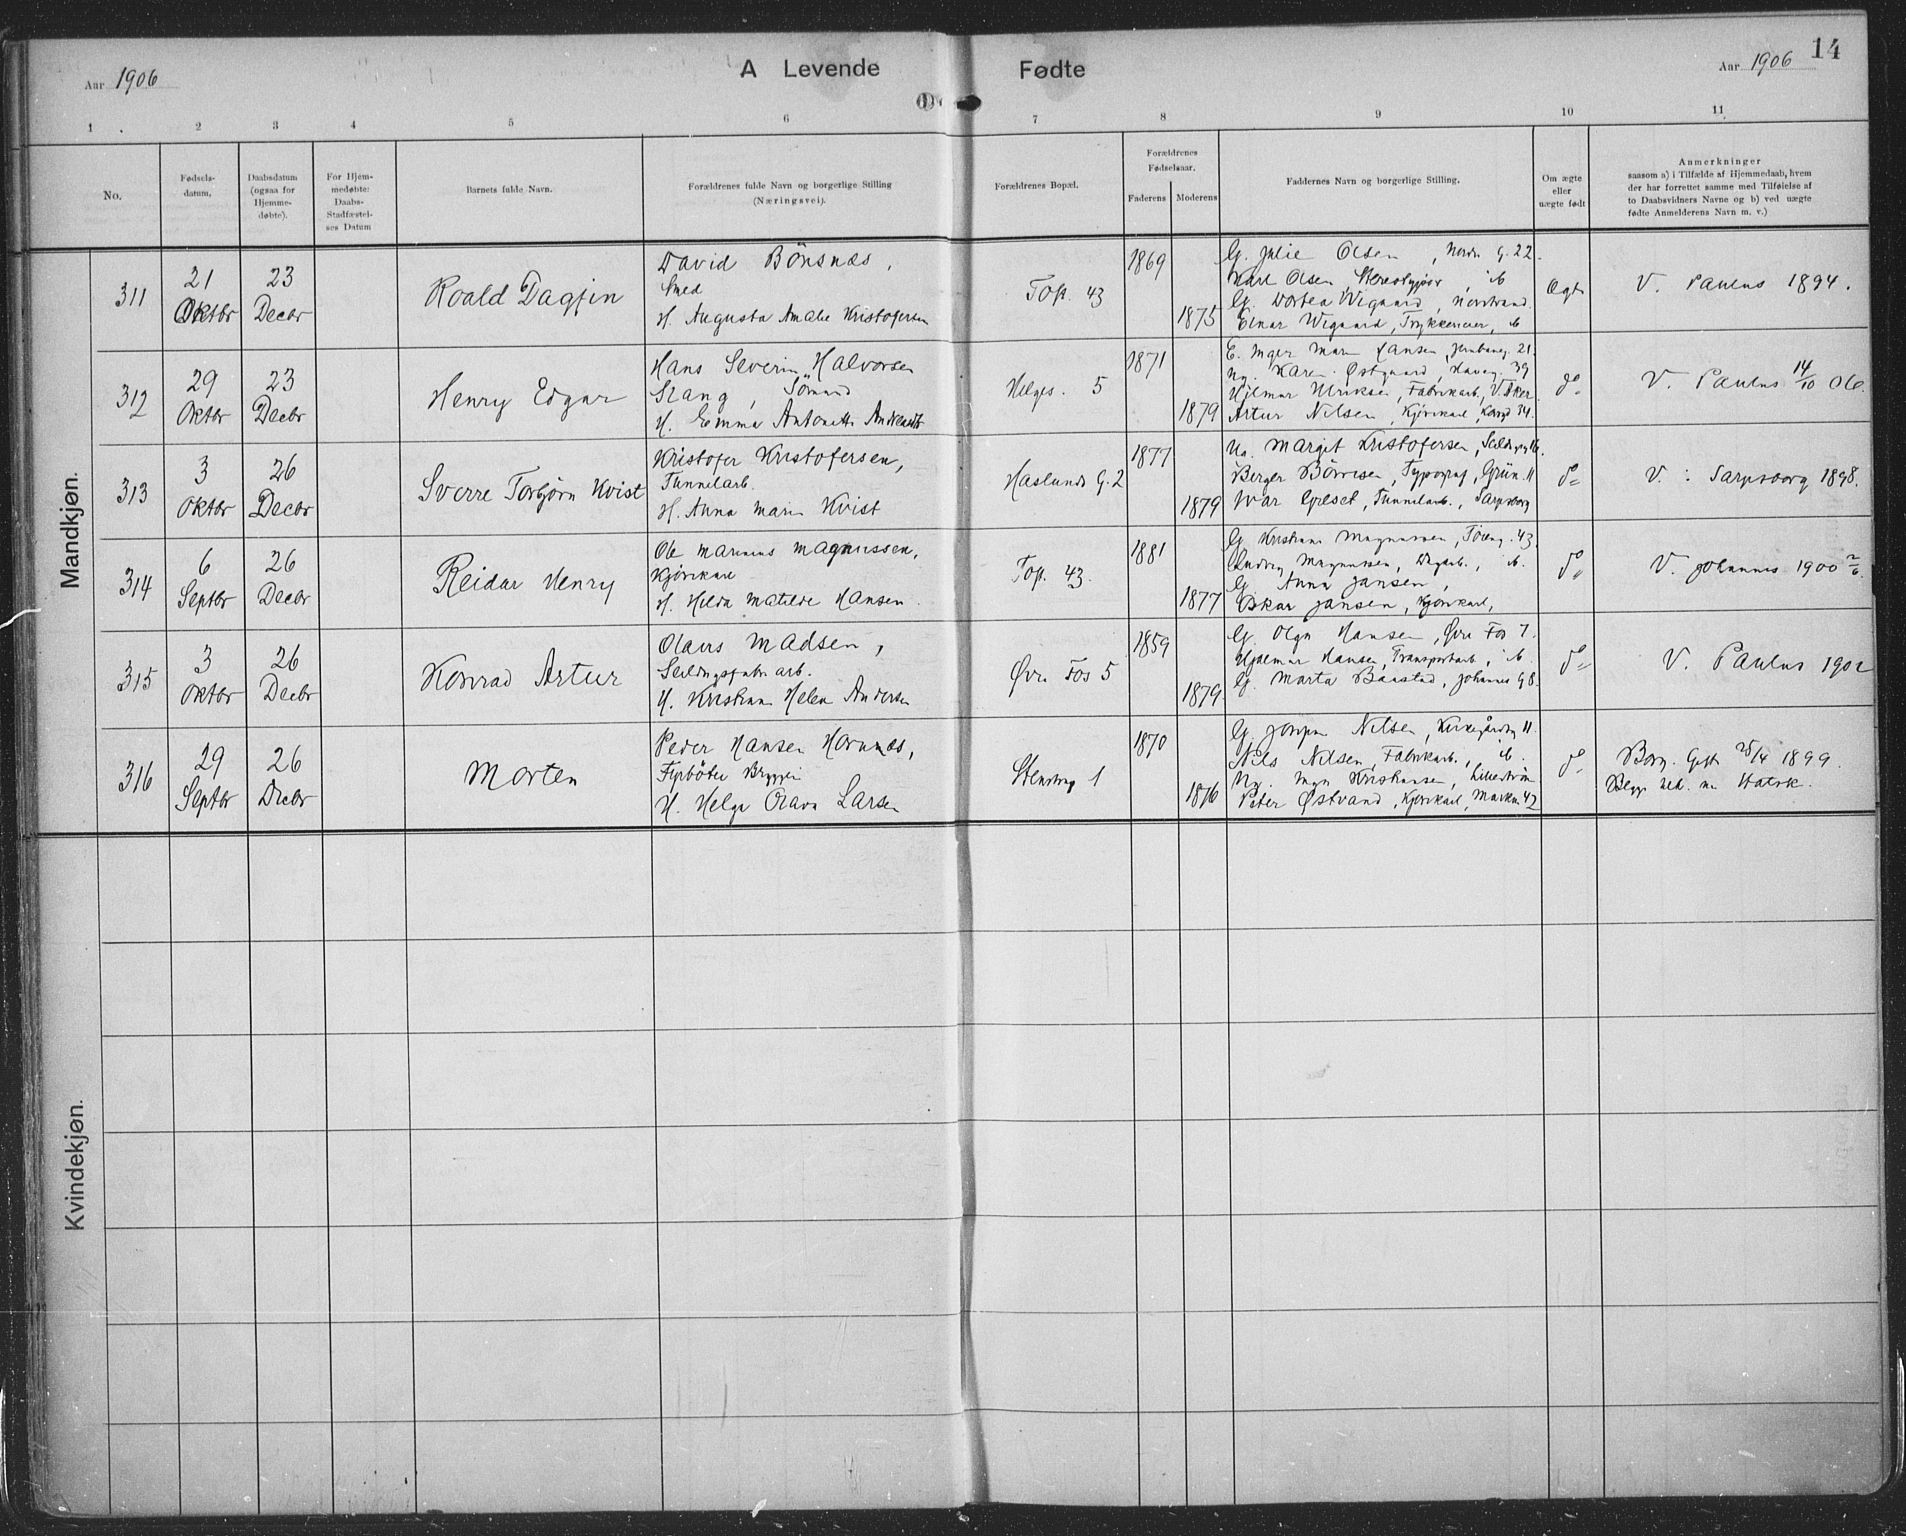 Aar 1906
A Levende Fødte
Aar 1906 14
1 2 3 4 5 6 7 8 9 10 11
No.
Fødsels-
datum.
Daabsdatum
(ogsaa for
Hjemme-
døbte).
For Hjem-
medøbte:
Daabs-
Stadfæstel-
ses Datum
Barnets fulde Navn.
Forældrenes fulde Navn og borgerlige Stilling
(Næringsvei).
Forældrenes Bopæl.
Forældrenes
Fødselsaar.
Faderens Moderens
Faddernes Navn og borgerlige Stilling.
Om ægte
eller
uægte født
Anmerkninger
saasom a) i Tilfælde af Hjemmedaab, hvem
der har forrettet samme med Tilføielse af
to Daabsvidners Navne og b) ved uægte
fødte Anmelderens Navn m. v.)
Mandkjøn.
311
21
Oktbr
23
Decbr
Roald Dagfin
David Bönsnæs,
Smed
H. Augusta Amalie Kristofersen
Tof. 43
1869
1875
G. Julie Olsen, Nordr. G. 22.
Karl Olsen, Stereotypör, ib
G. Dortea Wigaard, Norstrand
Einar Wigaard, Trykkerieier, ib
Ægt
V. Paulus 1894.
312
29
Oktbr
23
Decbr
Henry Edgar
Hans Severin Halvorsen
Stang, Sömand
H. Emma Antonette
Helges. 5
1871
1879
E. Inger Marie Hansen, Jernbaneg. 21.
Ug. Karen Østgaard, Haveg. 39
Hjelmar Ulriksen, Fabrikarb., V. Aker
Artur Nilsen, Kjörekarl, 34.
do
V. Paulus 14/10 06
313
3
Oktbr
26
Decbr
Sverre Torbjørn Kvist
Kristofer Kristofersen,
Tunnelarb.
H. Anna Marie Kvist
Haslunds G. 2
1877
1879
Ug. Margit Kristofersen, 16.
Berger Börresen, Typograf, Grün. 11
Ivar Gjelset, Tunnelarb., Sarpsborg
do
V. : Sarpsborg 1898.
314
6
Septbr
26
Decbr
Reidar Henry
Ole Marinius Magnussen,
Kjörekarl
H. Hilda Matilde Hansen.
Tof. 43.
1881
1877
G. Kristiane Magnussen, Töieng. 43.
Ludvig Magnussen, Dagarb., ib.
G. Anna Jansen,
Oskar Jansen, Kjörekarl,
do
V. Johannes 1900
315
3
Oktbr
26
Decbr
Konrad Artur
Olaus Madsen,
Seildugsfabr. arb.
H. Kristiane Helen Andersen
Øvre Fos 5
1859
1879.
G. Olga Hansen, Øvre Fos 7.
Hjalmar Hansen, Transportarb., ib
G. Marta Baastad, Johannes G 8.
do
V. Paulus 1902
316
29
Septbr
26
Decbr
Morten
Peder Hansen Hornnæs,
Fyrböter Bryggeri
H. Helga Olava Larsen
Stenstrup 1
1870
1876
G. Josefine Nilsen, Kirkegårdsg 11.
Nils Nilsen, Fabrikarb., ib.
Ug. Kristiansen, Lilleström
Peter Østvand, Kjörekarl, Markv. 42
do
Borg. Gift 25/4 1899.
Begge Udm. af Statsk.
Kvindekjøn.